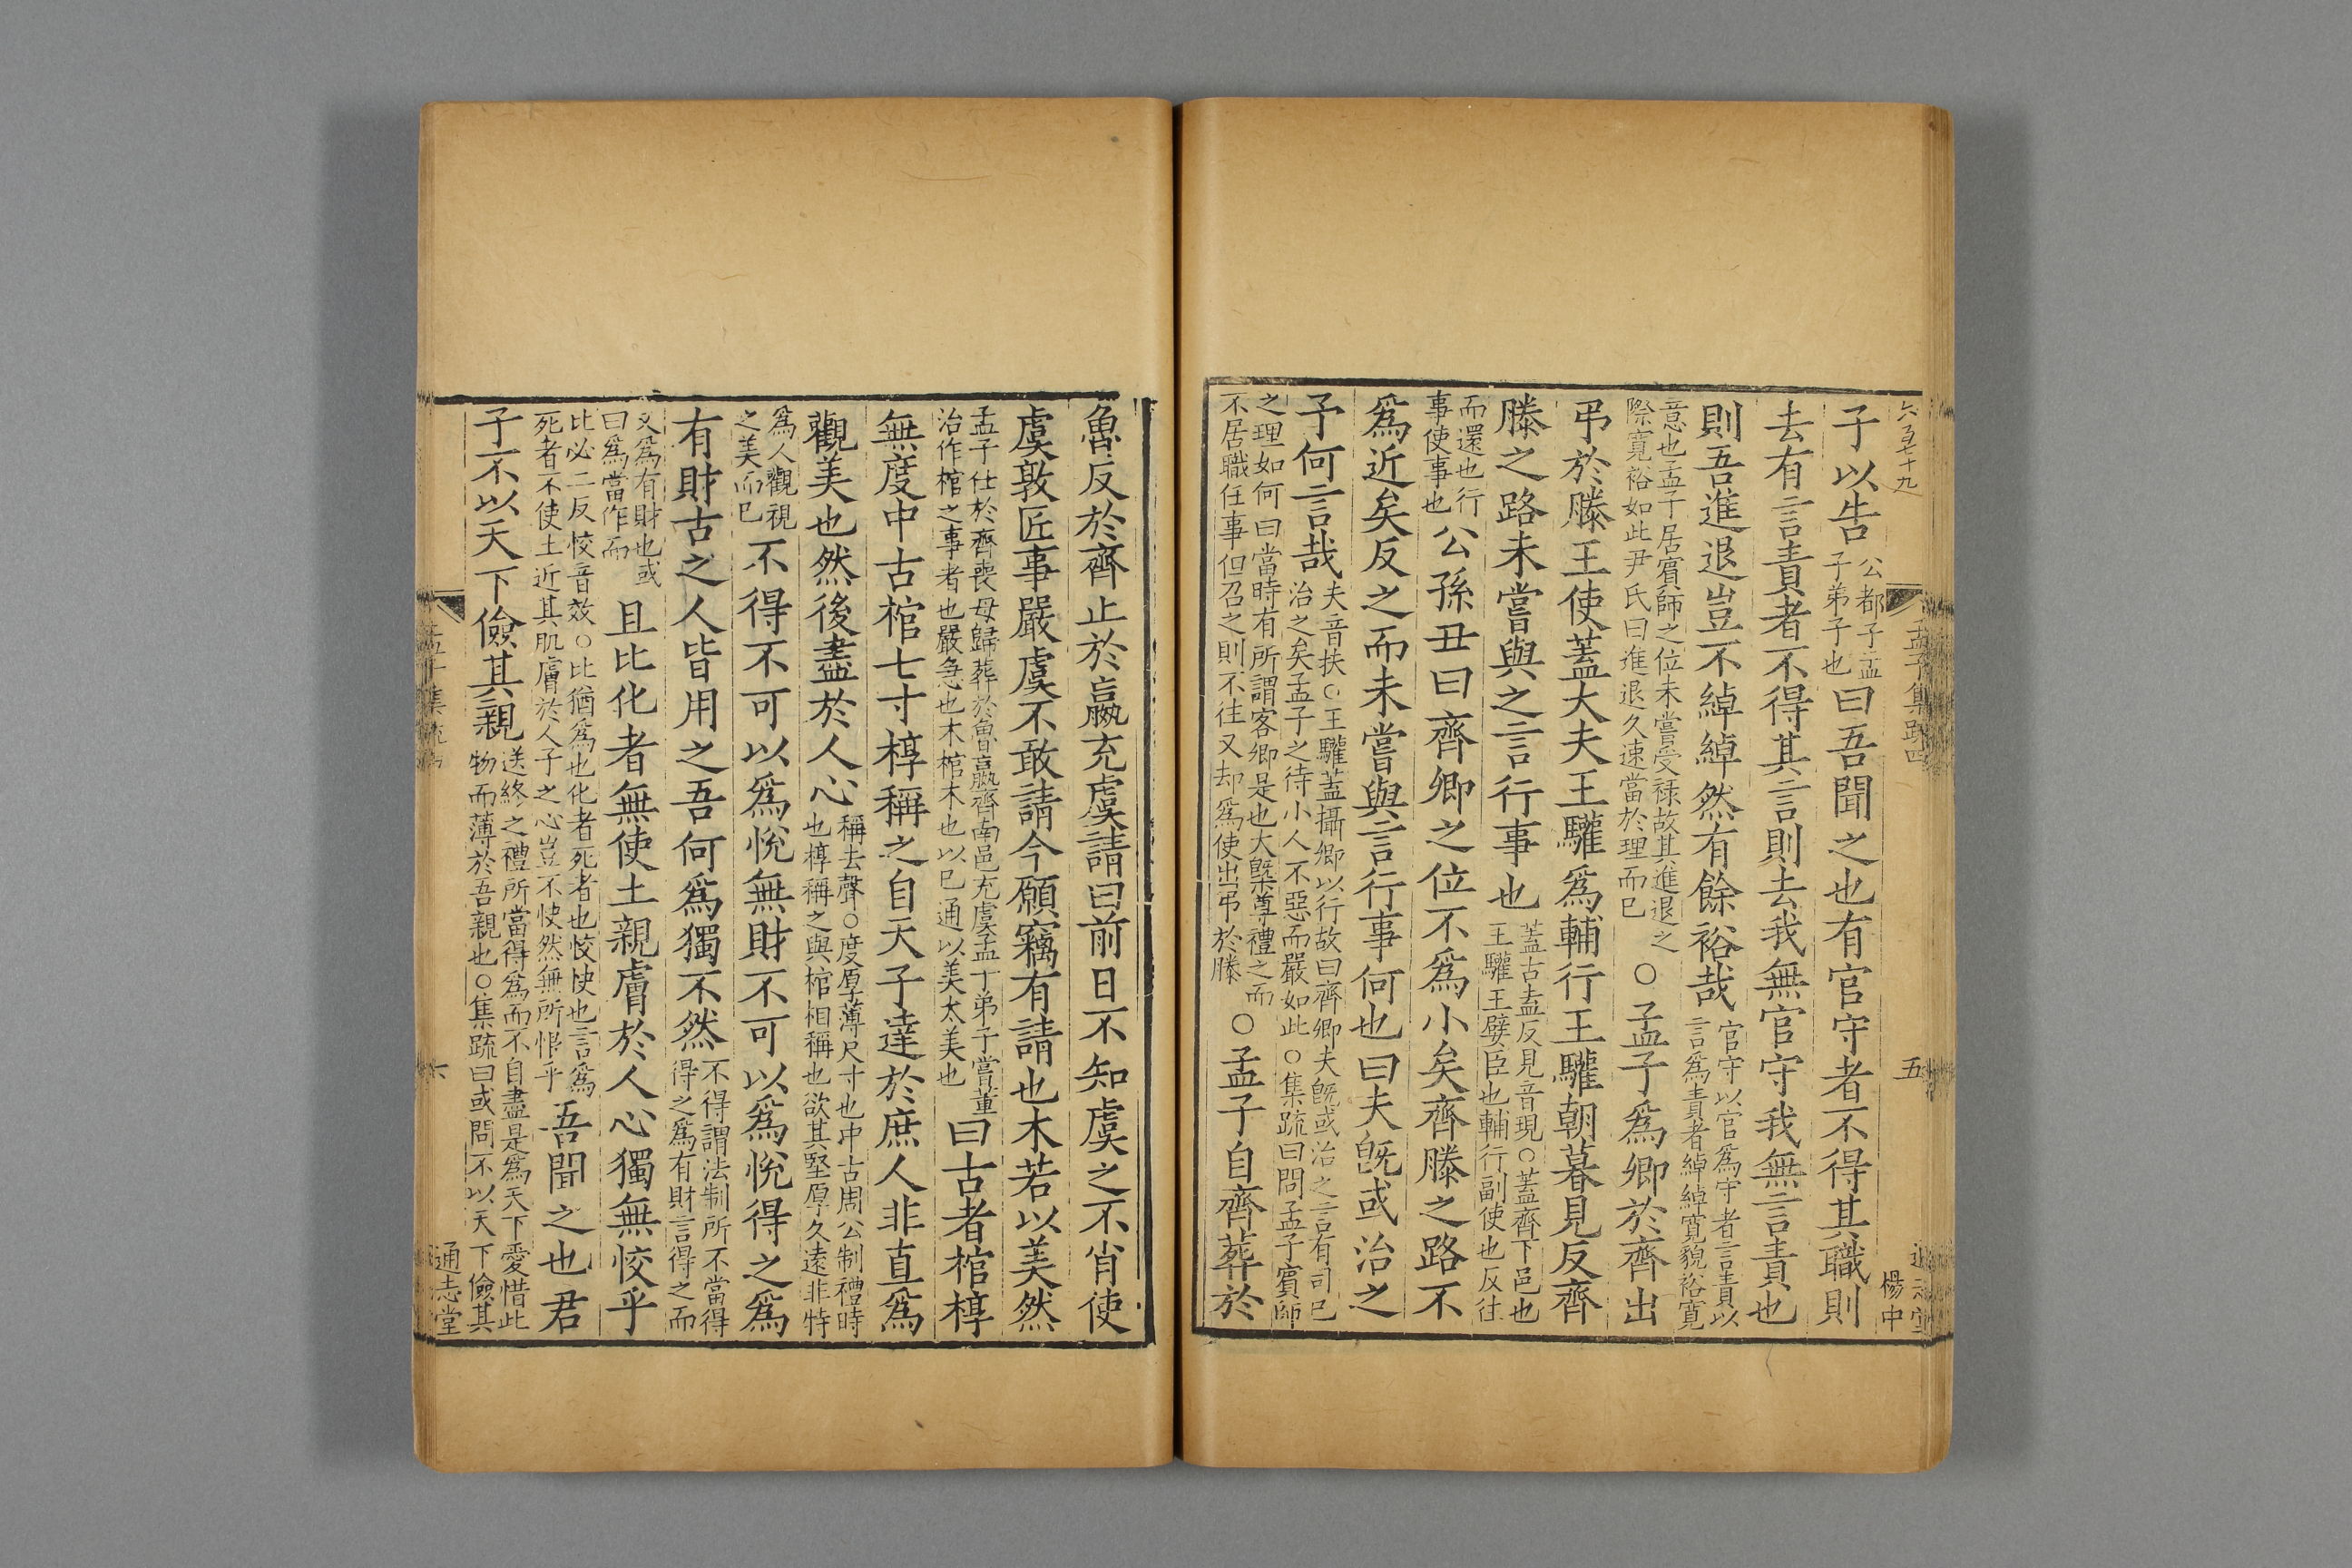 六百七十九
孟子集疏四
五
通志堂
楊中
子以告公都子孟子弟子也曰吾聞之也有官守者不得其職則
去有言責者不得其言則去我無官守我無言責也
則吾進退豈不綽綽然有餘裕哉官守以官爲守者言責以言爲責者綽綽寬貌裕寬
意也孟子居賓師之位未嘗受祿故其進退之際寬裕如此尹氏曰進退久速當於理而已○孟子爲卿於齊出
弔於滕王使蓋大夫王驩爲輔行王驩朝暮見反齊
滕之路未嘗與之言行事也蓋古盍反見音現○蓋齊下邑也王驩王嬖臣也輔行副使也反往
而還也行事使事也公孫丑曰齊卿之位不爲小矣齊滕之路不
爲近矣反之而未嘗與言行事何也曰夫旣或治之
予何言哉夫音扶○王驩蓋攝卿以行故曰齊卿夫旣或治之言有司已治之矣孟子之待小人不惡而嚴如此○集疏曰問孟子賓師
之理如何曰當時有所謂客卿是也大槩尊禮之而不居職任事但召之則不往又却爲使出弔於滕○孟子自齊葬於
魯反於齊止於嬴充虞請曰前日不知虞之不肖使
虞敦匠事嚴虞不敢請今願竊有請也木若以美然
孟子仕於齊喪母歸葬於魯嬴齊南邑充虞孟子弟子嘗董治作棺之事者也嚴急也木棺木也以已通以美太美也曰古者棺椁
無度中古棺七寸椁稱之自天子達於庶人非直爲
觀美也然後盡於人心稱去聲○度厚薄尺寸也中古周公制禮時也椁稱之與棺相稱也欲其堅厚久遠非特
爲人觀視之美而已不得不可以爲悅無財不可以爲悅得之爲
有財古之人皆用之吾何爲獨不然不得謂法制所不當得得之爲有財言得之而
又爲有財也或曰爲當作而且比化者無使土親膚於人心獨無恔乎
比必二反恔音效○比猶爲也化者死者也恔快也言爲死者不使土近其肌膚於人子之心豈不快然無所恨乎吾聞之也君
子不以天下儉其親送終之禮所當得爲而不自盡是爲天下愛惜此物而薄於吾親也○集疏曰或問不以天下儉其
孟子集疏
六
通志堂